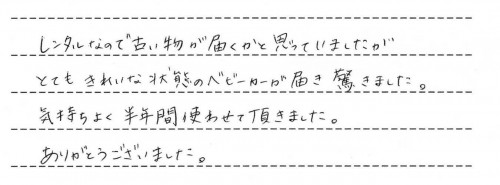 レンタルなので古い物が届くかと思っていましたが
とてもきれいな状態のベビーカーが届き驚きました。
気持ちよく半年間使わせて頂きました。
ありがとうございました。